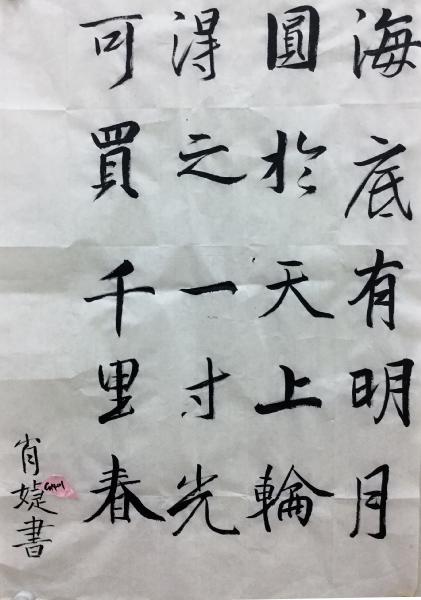 海底有明月
圓於天上輪
得之一寸光
可買千里春
肖婕書